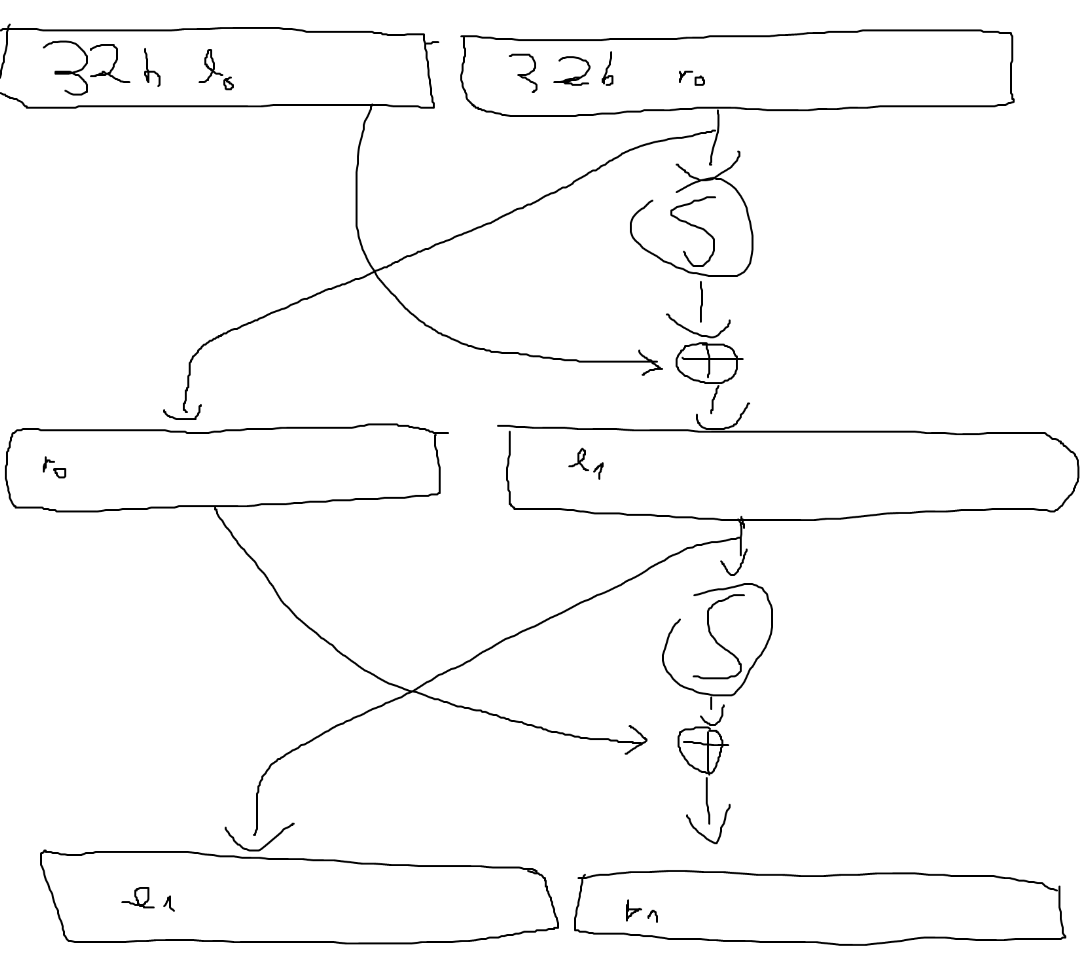 32b l₀ 32b r₀
S
r₀ l₁
S
l₁ r₁